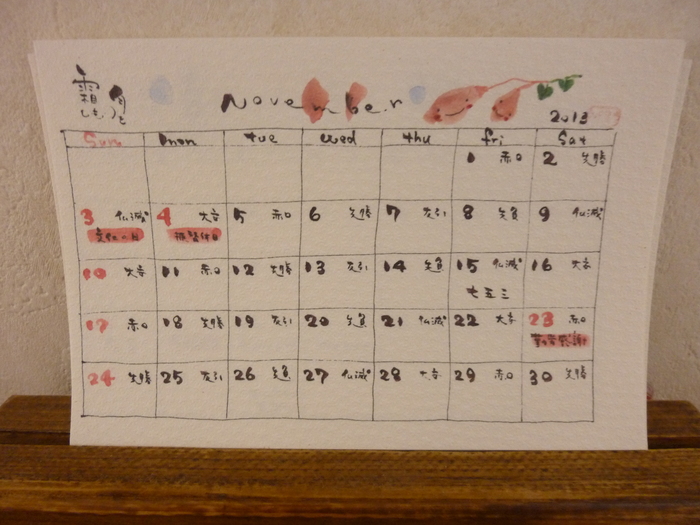 霜月
しもつき
November
2013
Sun mon tue wed thu fri Sat
1 赤口 2 先勝
3 仏滅 4 大安 5 赤口 6 先勝 7 友引 8 先負 9 仏滅
文化の日 振替休日
10 大安 11 赤口 12 先勝 13 友引 14 先負 15 仏滅 16 大安
七五三
17 赤口 18 先勝 19 友引 20 先負 21 仏滅 22 大安 23 赤口
勤労感謝
24 先勝 25 友引 26 先負 27 仏滅 28 大安 29 赤口 30 先勝